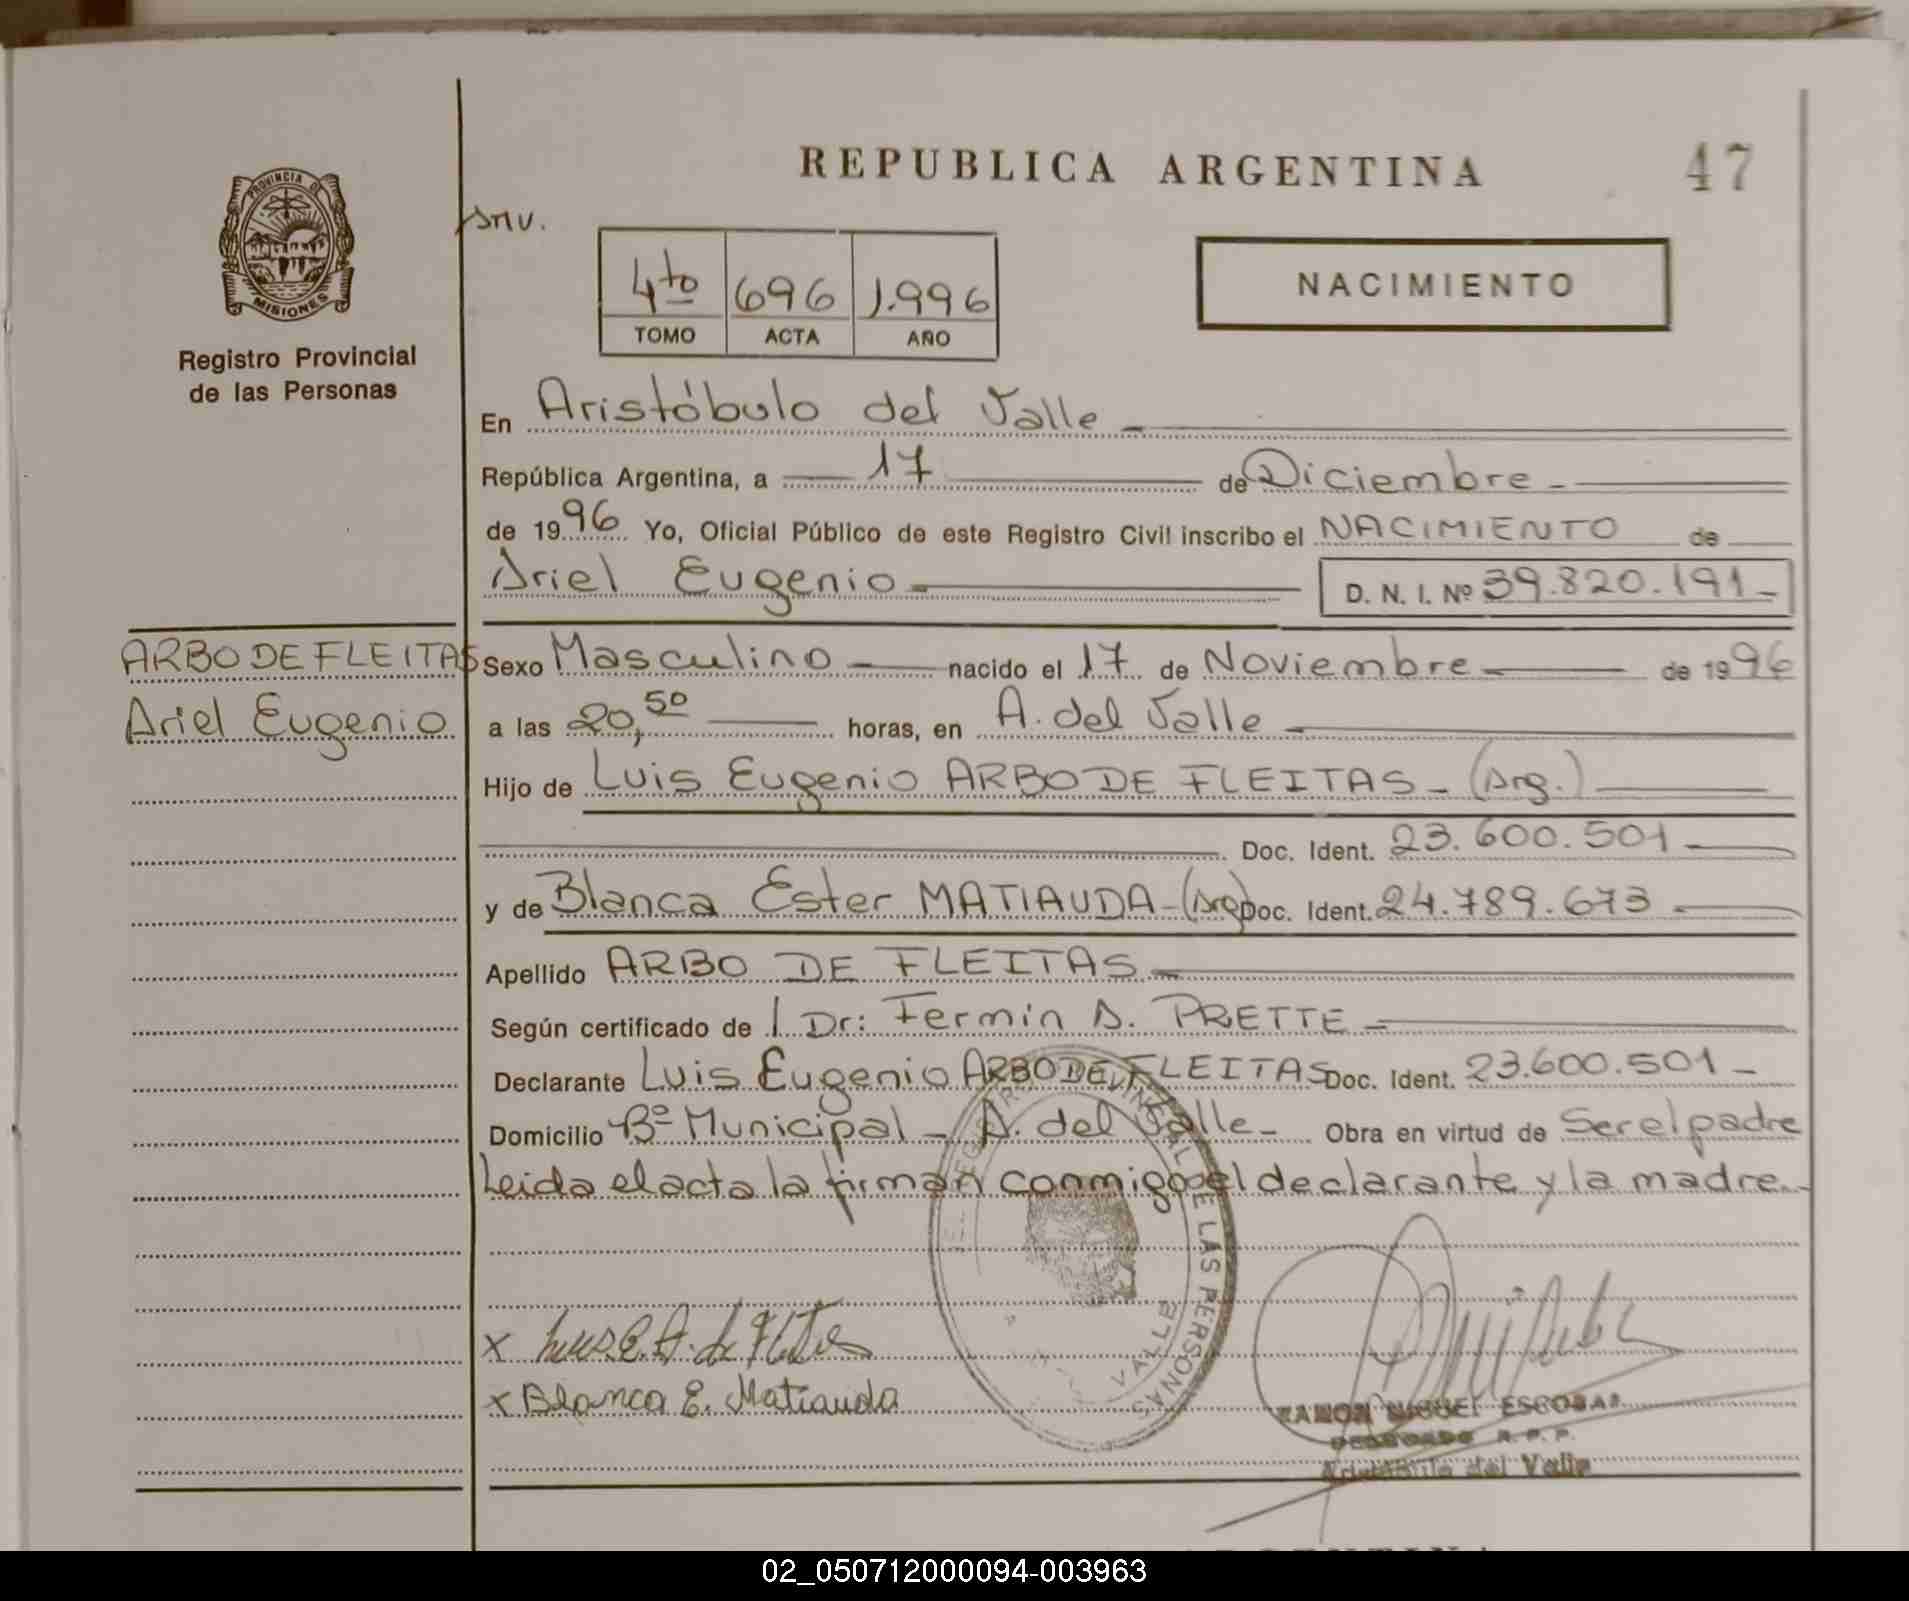 REPUBLICA ARGENTINA
47
PROVINCIA DE
MISIONES
Registro Provincial
de las Personas
4to 696 1.996
TOMO ACTA AÑO
NACIMIENTO
En Aristóbulo del Valle
República Argentina, a 17 de Diciembre
de 1996 Yo, Oficial Público de este Registro Civil inscribo el NACIMIENTO de
Ariel Eugenio D. N. I. Nº 39.820.191
ARBO DE FLEITAS
Ariel Eugenio
Sexo Masculino nacido el 17 de Noviembre de 1996
a las 20,50 horas, en A. del Valle
Hijo de Luis Eugenio ARBO DE FLEITAS - (Arg.)
Doc. Ident. 23.600.501
y de Blanca Ester MATIAUDA - (Arg) Doc. Ident. 24.789.673
Apellido ARBO DE FLEITAS
Según certificado de Dr: Fermin A. PRETTE
Declarante Luis Eugenio ARBO DE FLEITAS Doc. Ident. 23.600.501
Domicilio Bº Municipal - A. del Valle - Obra en virtud de Ser el padre
Leida el acta la firman conmigo el declarante y la madre.
x Luis E. A. de Fleitas
x Blanca E. Matiauda
DE LAS PERSONAS
VALLE
RAMON MIGUEL ESCOBAR
DELEGADO R. P. P.
Aristóbulo del Valle
02_050712000094-003963